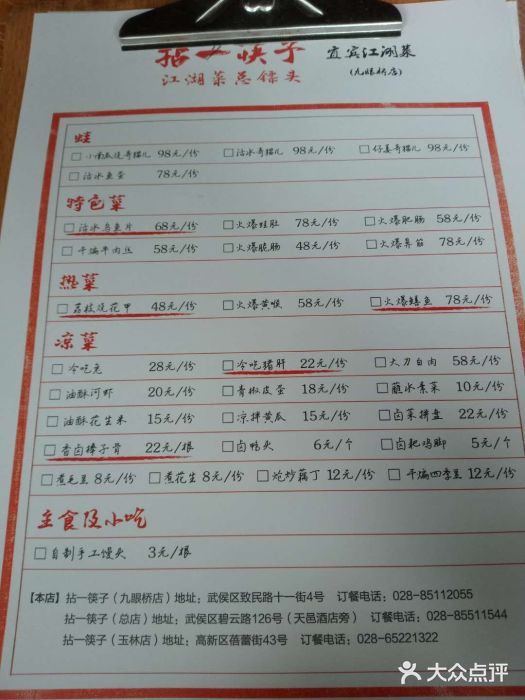 拈一筷子 宜宾江湖菜
江湖菜总馆头 (九眼桥店)
蛙
□小南瓜烧奇猫儿 98元/份 □沾水奇猫儿 98元/份 □仔姜奇猫儿 98元/份
□沾水鱼蛋 78元/份
特色菜
□沾水乌鱼片 68元/份 □火爆蛙肚 78元/份 □火爆肥肠 58元/份
□干煸牛肉丝 58元/份 □火爆脆肠 48元/份 □火爆鼻筋 78元/份
热菜
□荔枝烧花甲 48元/份 □火爆黄喉 58元/份 □火爆鳝鱼 78元/份
凉菜
□冷吃兔 28元/份 □冷吃猪肝 22元/份 □大刀白肉 58元/份
□油酥河虾 20元/份 □青椒皮蛋 18元/份 □蘸水素菜 10元/份
□油酥花生米 15元/份 □凉拌黄瓜 15元/份 □卤菜拼盘 22元/份
□香卤棒子骨 22元/根 □卤鸭头 6元/个 □卤粑鸡脚 5元/个
□煮毛豆 8元/份 □煮花生 8元/份 □炝炒藕丁 12元/份 □干煸四季豆 12元/份
主食及小吃
□自制手工馒头 3元/根
【本店】拈一筷子（九眼桥店）地址：武侯区致民路十一街4号 订餐电话：028-85112055
拈一筷子（总店）地址：武侯区碧云路126号（天邑酒店旁） 订餐电话：028-85511544
拈一筷子（玉林店）地址：高新区蓓蕾街43号 订餐电话：028-65221322
大众点评